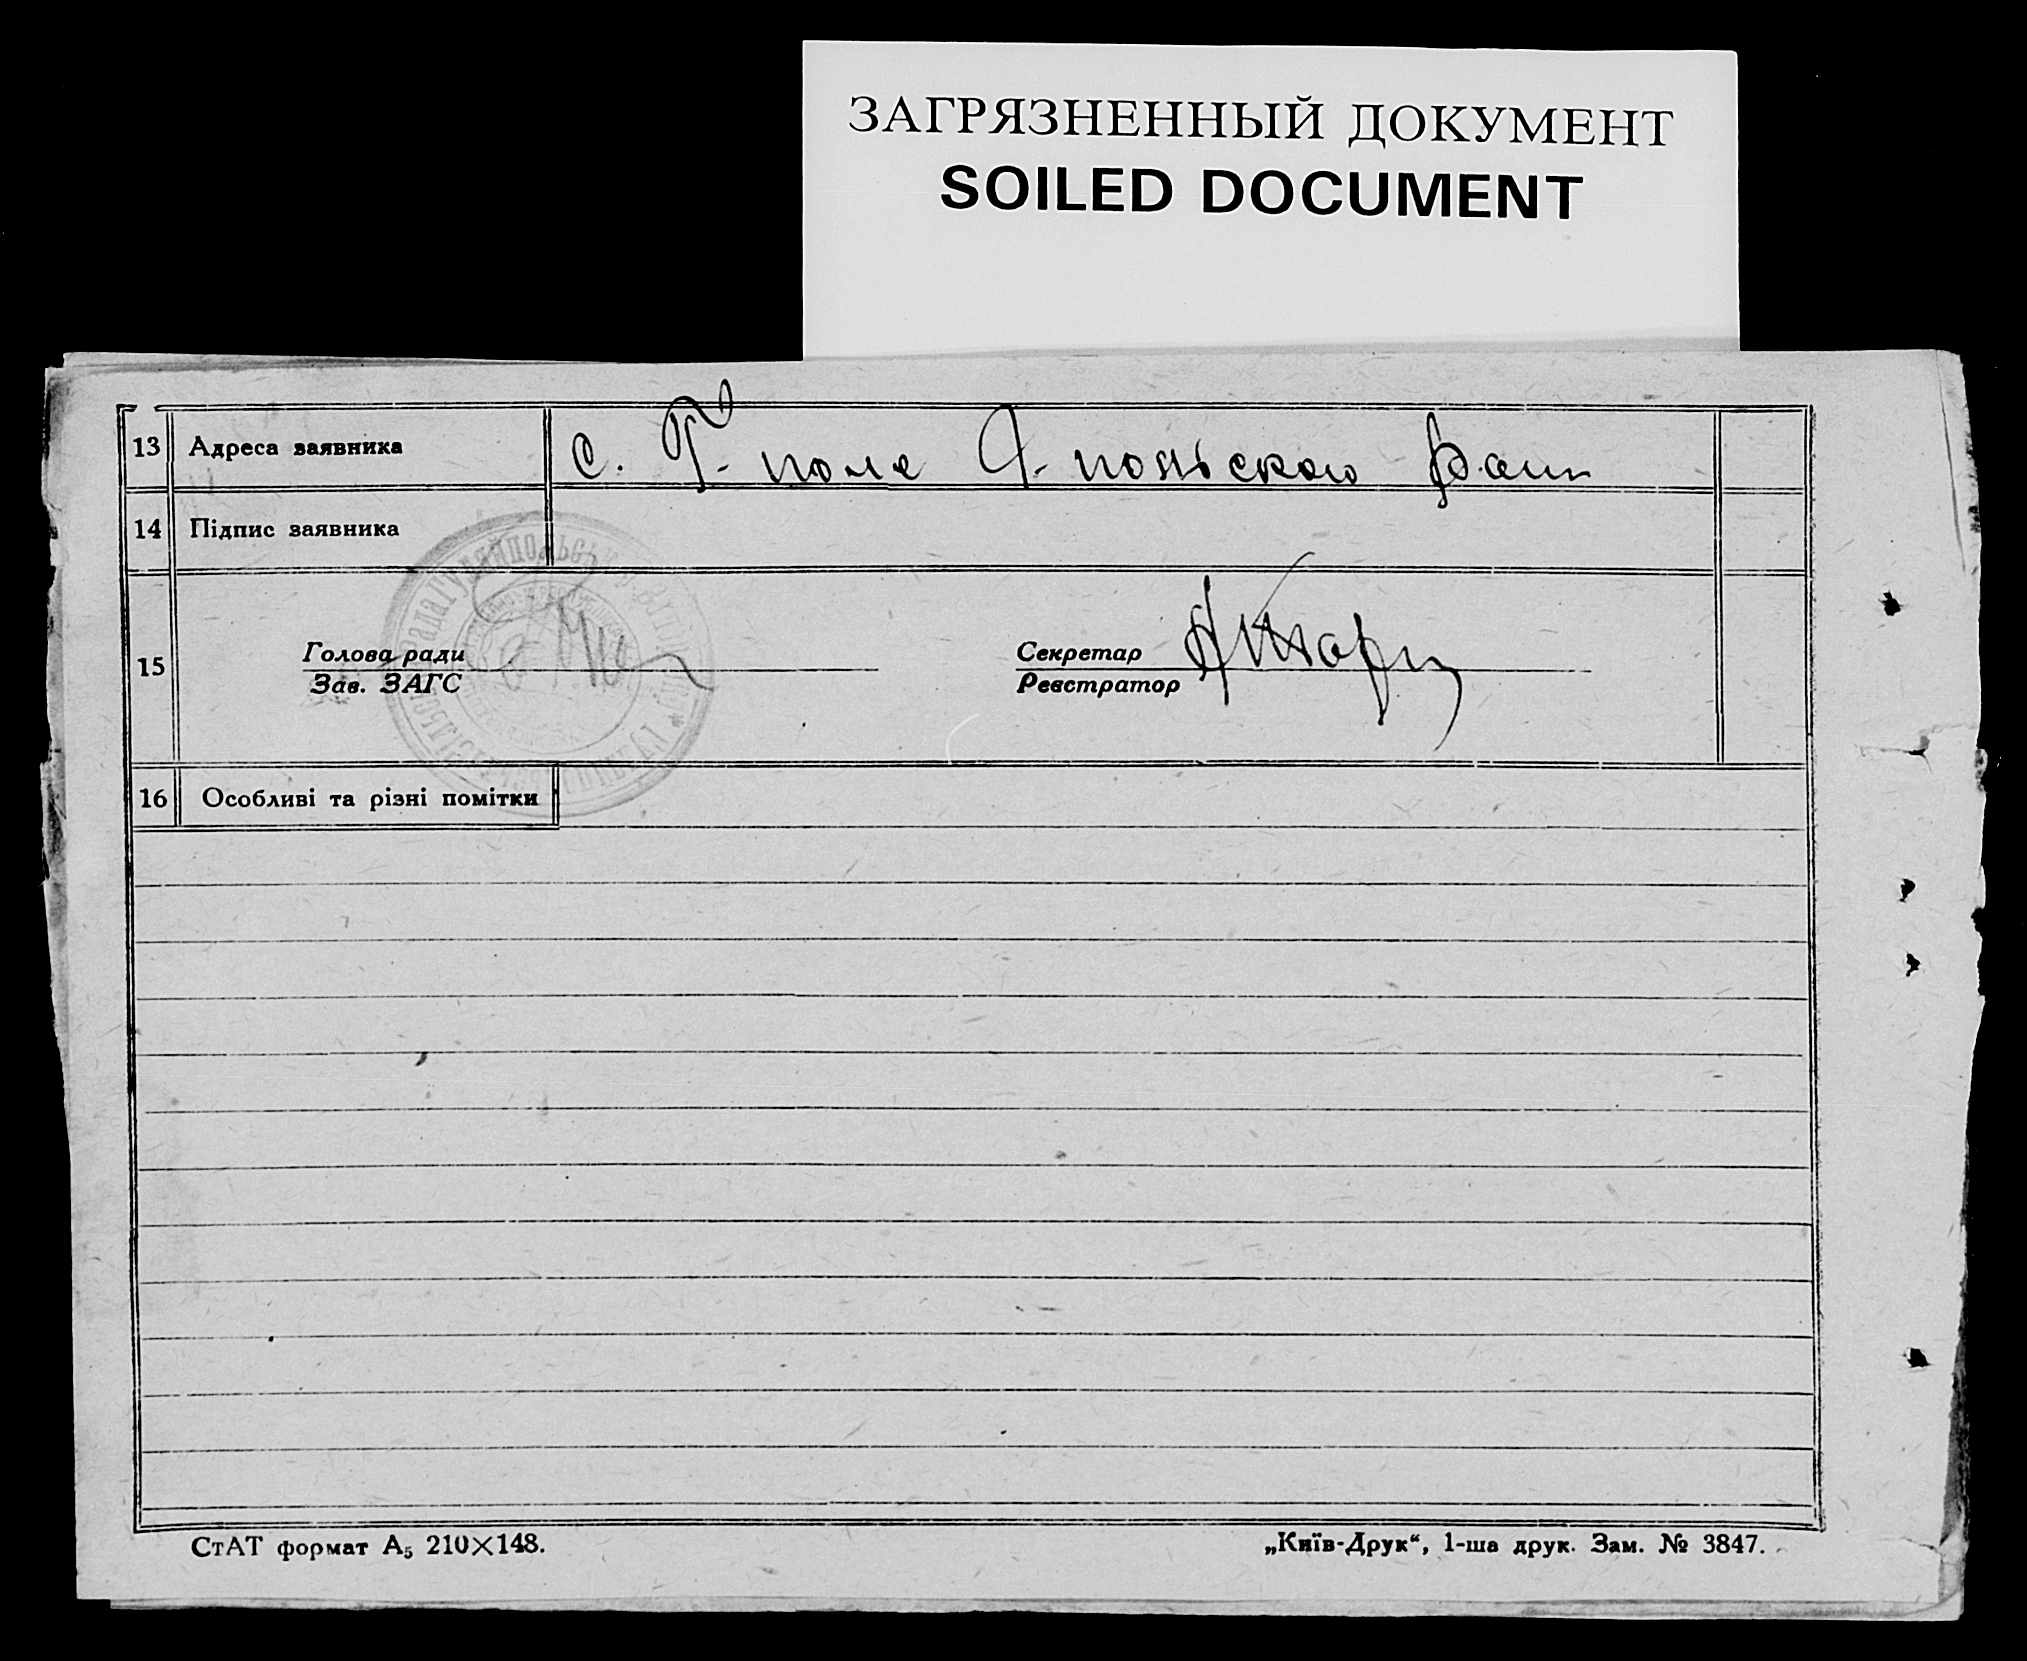 ЗАГРЯЗНЕННЫЙ ДОКУМЕНТ
SOILED DOCUMENT
13 Адреса заявника с. Г-поле Г-польского рай
14 Підпис заявника
15 Голова ради Секретар
Зав. ЗАГС Реєстратор
16 Особливі та різні помітки
СтАТ формат А₅ 210×148. „Київ-Друк“, 1-ша друк. Зам. № 3847.